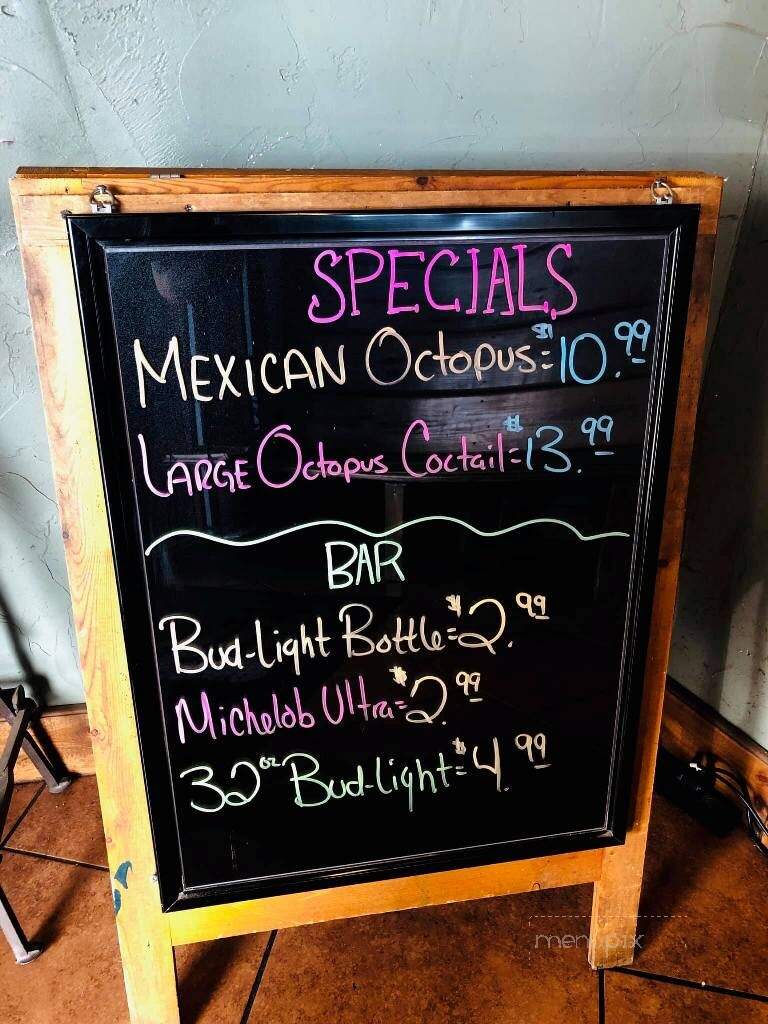 SPECIALS
MEXICAN Octopus = $10.99
LARGE Octopus Coctail = $13.99
BAR
Bud-Light Bottle = $2.99
Michelob Ultra = $2.99
32oz Bud-Light = $4.99
menupix